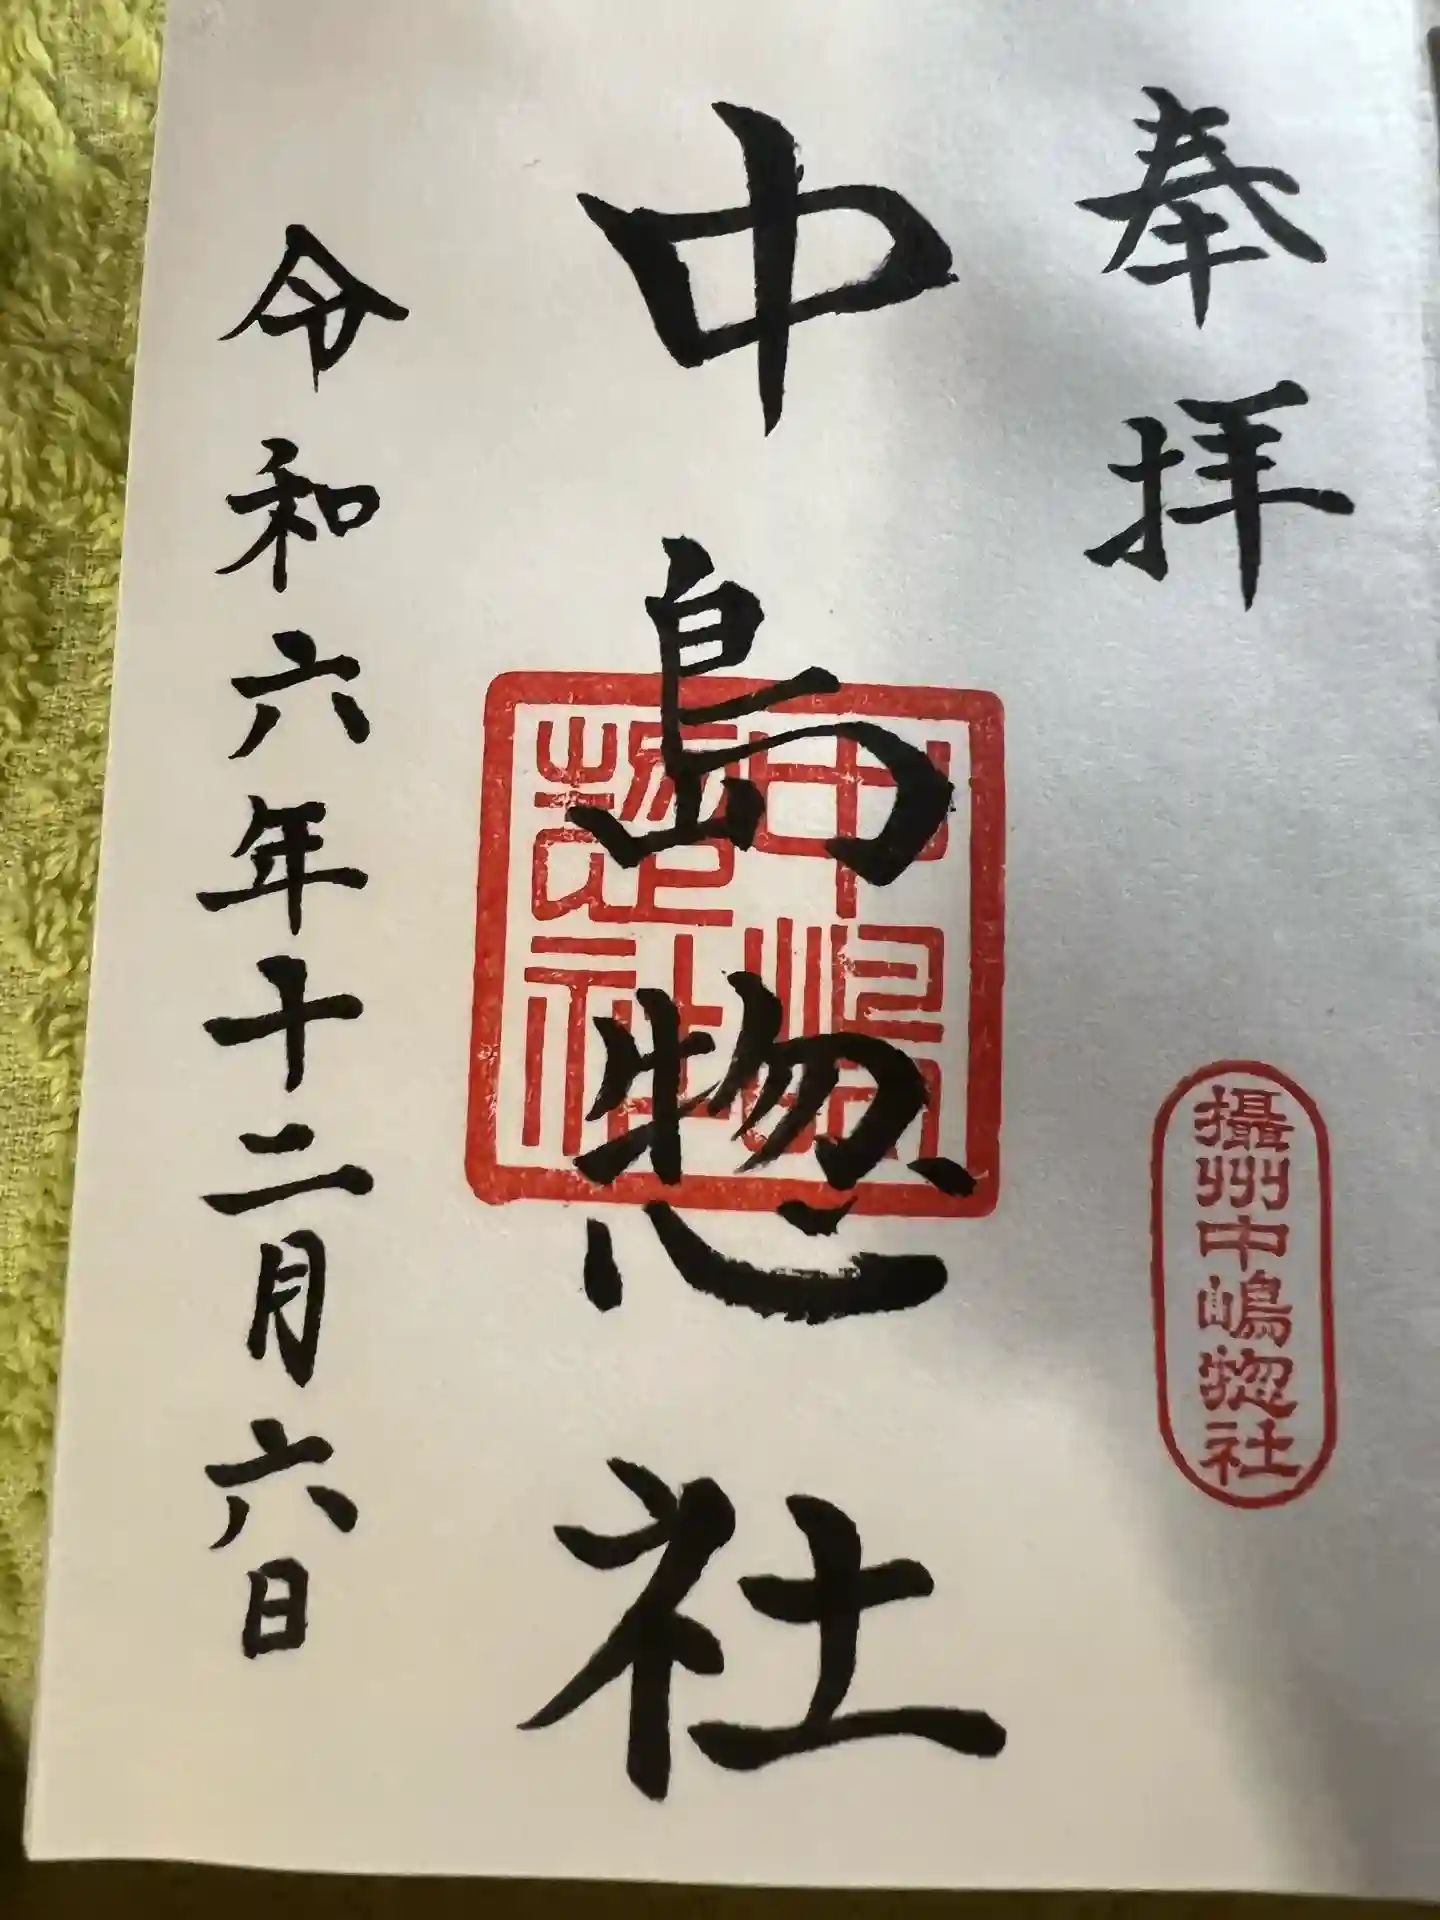 奉拝
攝州中嶋惣社
中島惣社
中嶋惣社
令和六年十二月六日